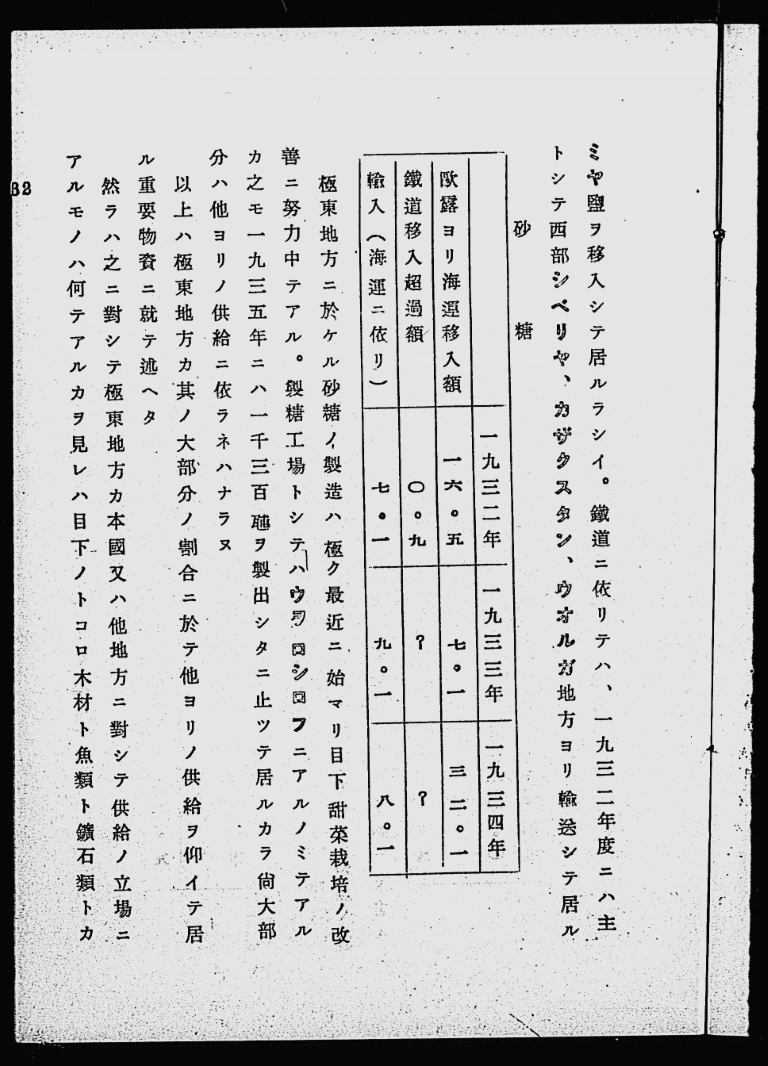 ミヤ鹽ヲ移入シテ居ルラシイ。鐵道ニ依リテハ、一九三二年度ニハ主
トシテ西部シベリヤ、カザクスタン、ウオルガ地方ヨリ輸送シテ居ル
砂糖
一九三二年 一九三三年 一九三四年
歐露ヨリ海運移入額 一六。五 七。一 三二。一
鐵道移入超過額 〇。九 ? ?
輸入(海運ニ依リ) 七。一 九。一 八。一
極東地方ニ於ケル砂糖ノ製造ハ極ク最近ニ始マリ目下甜菜栽培ノ改
善ニ努力中テアル。製糖工場トシテハウヲロシロフニアルノミテアル
カ之モ一九三五年ニハ一千三百砘ヲ製出シタニ止ツテ居ルカラ尙大部
分ハ他ヨリノ供給ニ依ラネハナラヌ
以上ハ極東地方カ其ノ大部分ノ割合ニ於テ他ヨリノ供給ヲ仰イテ居
ル重要物資ニ就テ述ヘタ
然ラハ之ニ對シテ極東地方カ本國又ハ他地方ニ對シテ供給ノ立場ニ
アルモノハ何テアルカヲ見レハ目下ノトコロ木材ト魚類ト鑛石類トカ
32